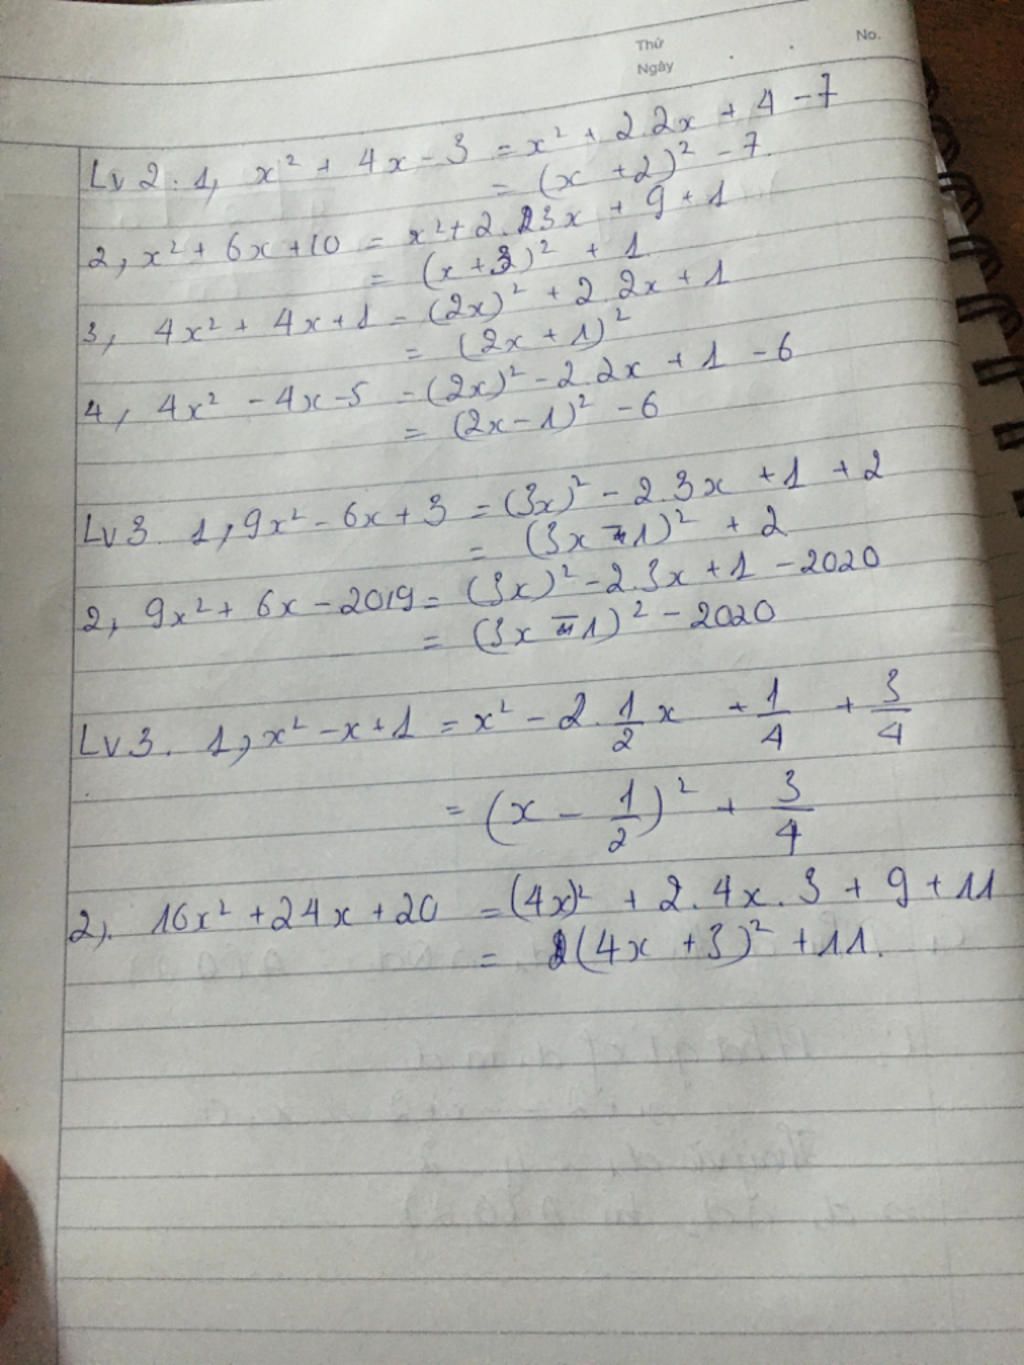 Thứ
Ngày
No.
Lv 2. 1, x² + 4x - 3 = x² + 2.2x + 4 - 7
= (x + 2)² - 7.
2, x² + 6x + 10 = x² + 2.3x + 9 + 1
= (x + 3)² + 1
3, 4x² + 4x + 1 = (2x)² + 2.2x + 1
= (2x + 1)²
4, 4x² - 4x - 5 = (2x)² - 2.2x + 1 - 6
= (2x - 1)² - 6
Lv 3. 1, 9x² - 6x + 3 = (3x)² - 2.3x + 1 + 2
= (3x - 1)² + 2
2, 9x² + 6x - 2019 = (3x)² - 2.3x + 1 - 2020
= (3x - 1)² - 2020
Lv 3. 1, x² - x + 1 = x² - 2.1/2 x + 1/4 + 3/4
= (x - 1/2)² + 3/4
2, 16x² + 24x + 20 = (4x)² + 2.4x.3 + 9 + 11
= (4x + 3)² + 11.